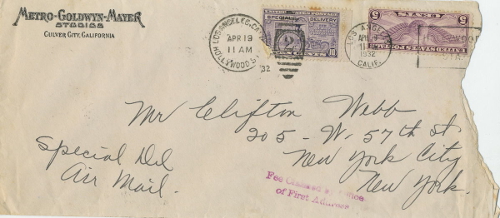 METRO-GOLDWYN-MAYER
STUDIOS
CULVER CITY, CALIFORNIA
LOS ANGELES-CAL
APR 13
11 AM
1932
HOLLYWOOD
SPECIAL DELIVERY
2
LOS ANGELES
APR
1932
CALIF.
5
5
Mr Clifton Webb
205 - W. 57th St
New York City
New York.
Special Del
Air Mail.
Fee Claimed at Office
of First Address